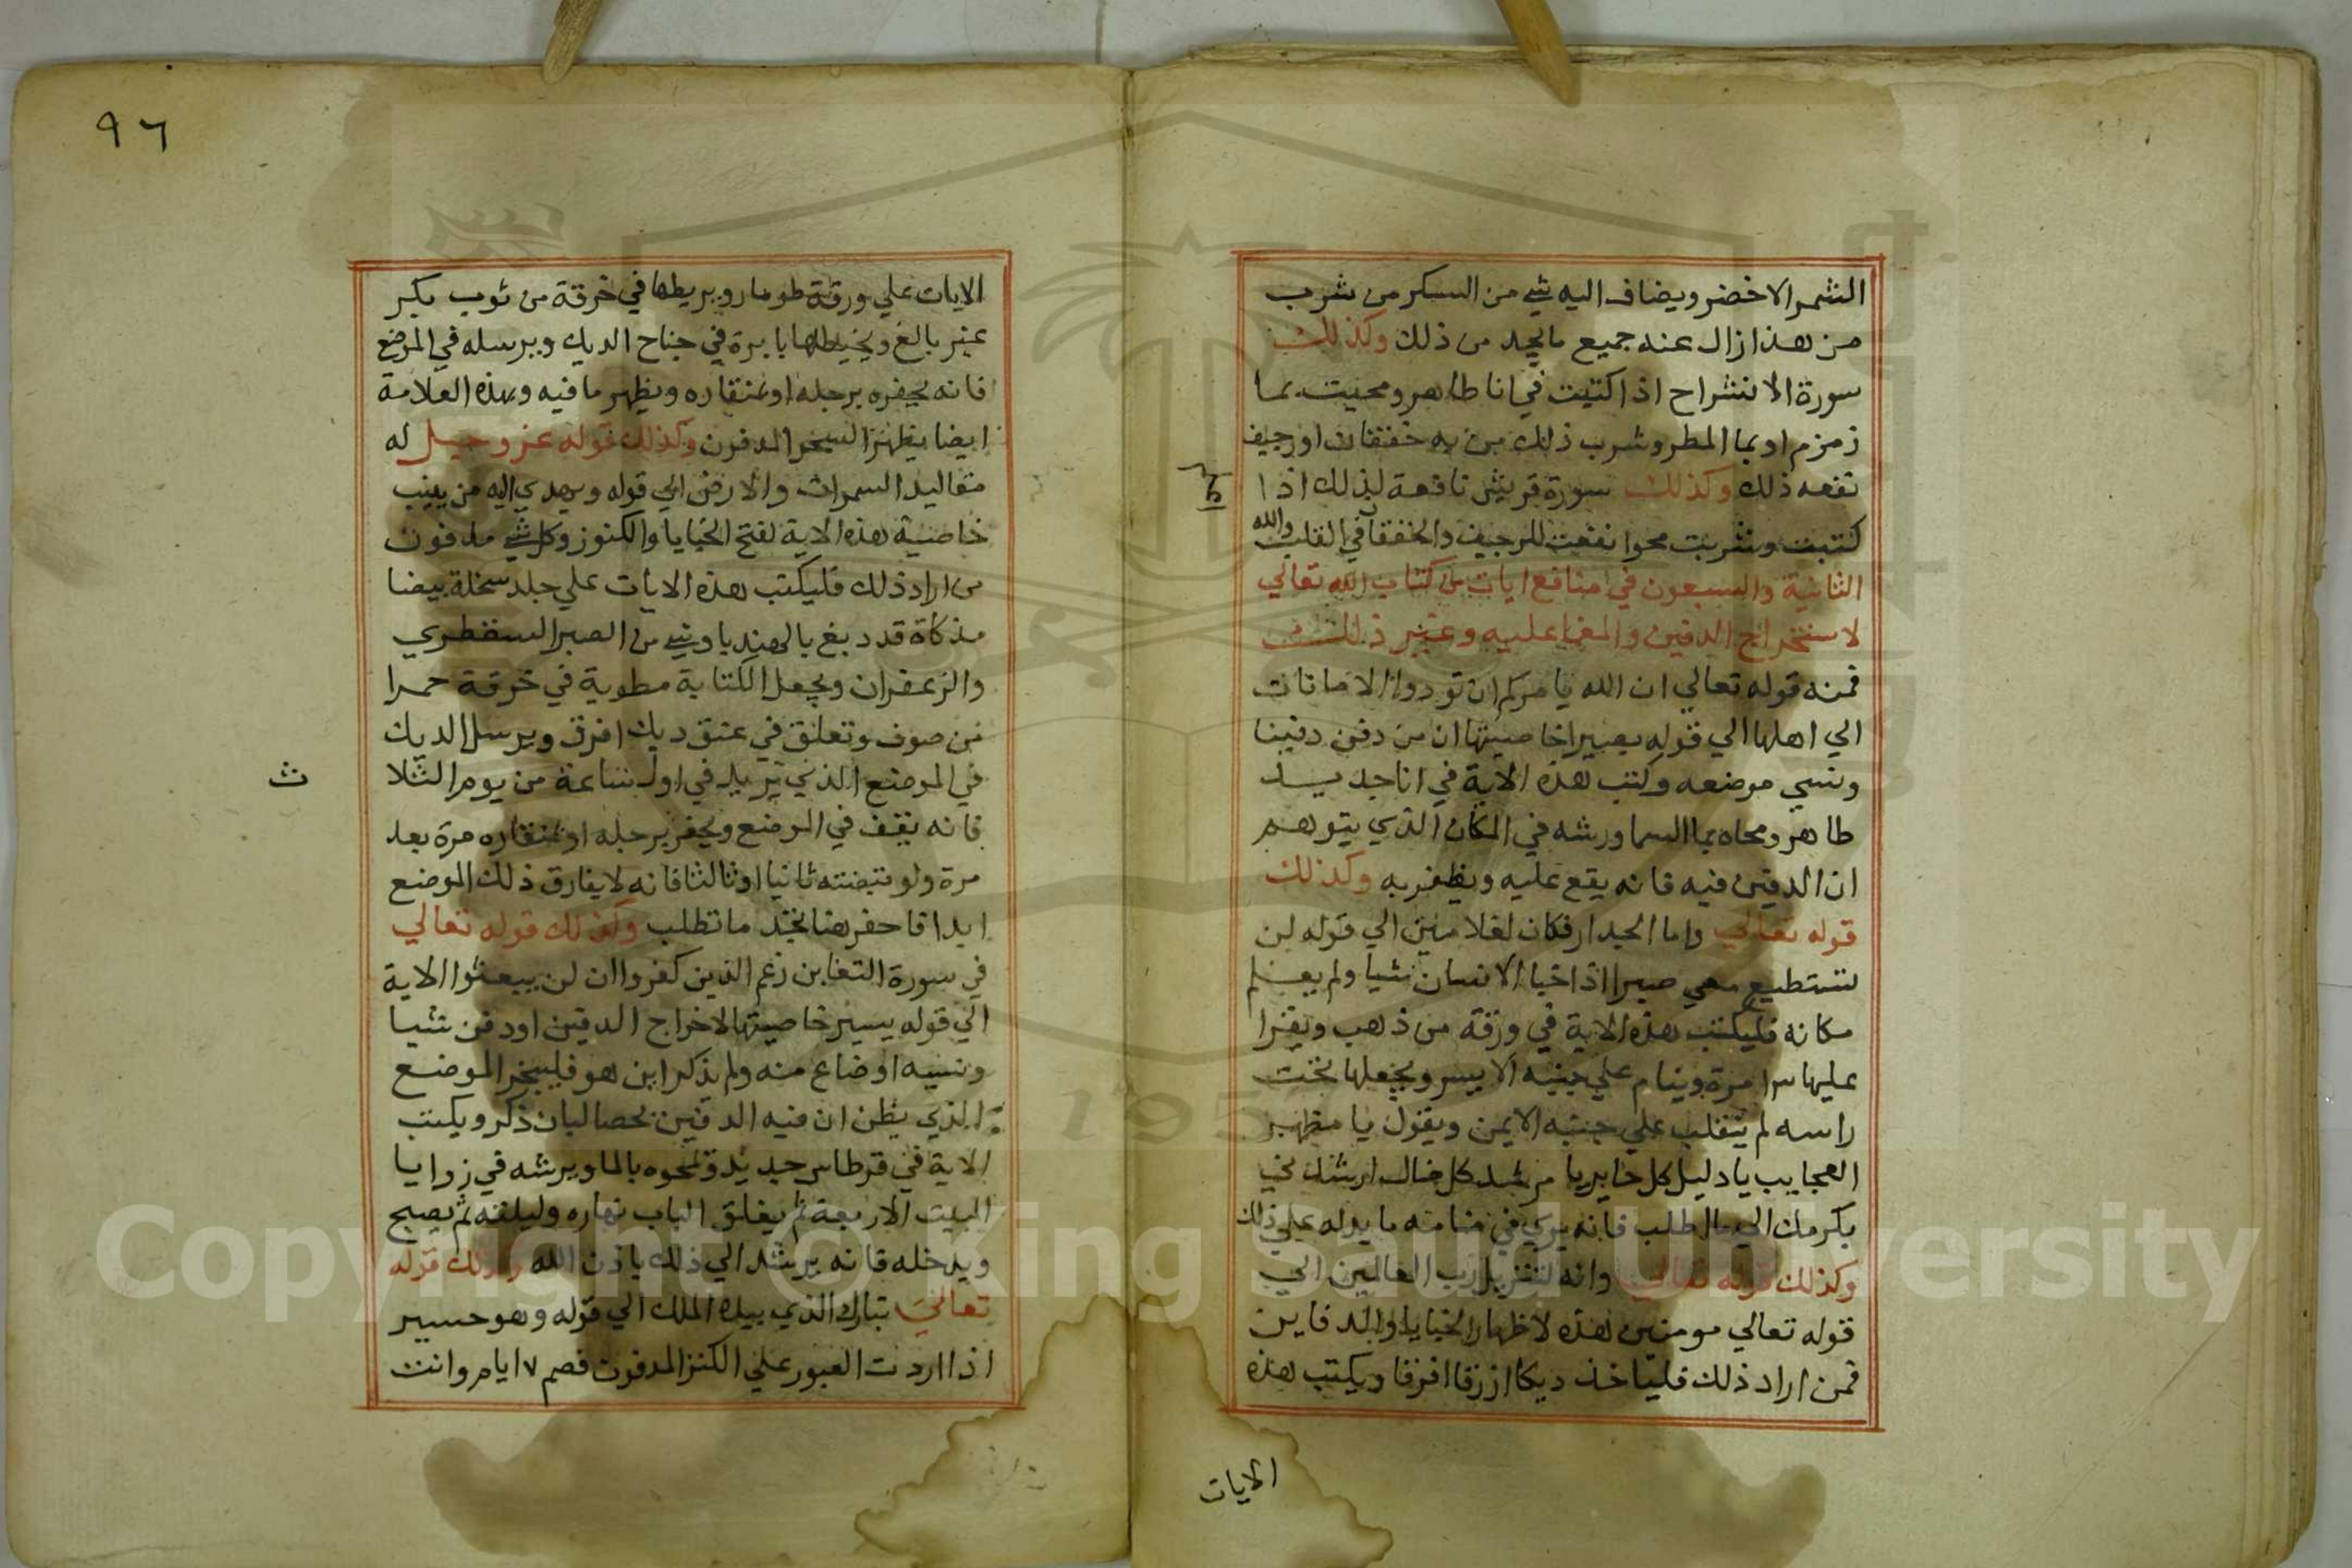 الشمر الاخضر ويضاف اليه شي من السكر من شرب
من هذا زال عنه جميع ما يجد من ذلك وكذلك
سورة الانشراح اذا كتبت في انا طاهر ومحيت بما
زمزم او بما المطر وشرب ذلك من به خفقان او رجيف
نفعه ذلك وكذلك سورة قريش نافعة لذلك اذا
كتبت وشربت محوا نفعت للرجيف والخفقان في القلب والله
الثانية والسبعون في منافع ايات من كتاب الله تعالي
لاستخراج الدفين والمغما عليه وغير ذلك
فمنه قوله تعالي ان الله يامركم ان تودوا الامانات
الي اهلها الي قوله بصيرا خاصيتها ان من دفن دفينا
ونسي موضعه وكتب هذه الاية في انا جديد
طاهر ومحاه بما السما ورشه في المكان الذي يتوهم
ان الدفين فيه فانه يقع عليه ويظفر به وكذلك
قوله تعالي واما الجدار فكان لغلامين الي قوله لن
تستطيع معي صبرا اذا خبا الانسان شيا ولم يعلم
مكانه فليكتب هذه الاية في ورقة من ذهب ويقرا
عليها مرة وينام علي جنبه الايسر ويجعلها تحت
راسه ثم يتقلب علي جنبه الايمن ويقول يا مظهر
العجايب يا دليل كل حاير يا مرشد كل ضال ارشدني
بكرمك الي ما اطلب فانه يري في منامه ما يدله علي ذلك
وكذلك قوله تعالي وانه لتنزيل رب العالمين الي
قوله تعالي مومنين هذه لاظهار الخبايا والدفاين
فمن اراد ذلك فلياخذ ديكا ازرقا افرقا ويكتب هذه
الايات
٩٦
الايات علي ورقة طومار ويربطها في خرقة من ثوب بكر
غير بالغ ويخيطها بابرة في جناح الديك ويرسله في الموضع
فانه يحفره برجله او بمنقاره ويظهر ما فيه وبهذه العلامة
ايضا يظهر السحر المدفون وكذلك قوله عز وجل له
مقاليد السموات والارض الي قوله ويهدي اليه من ينيب
خاصية هذه الاية لفتح الخبايا والكنوز وكل شي مدفون
من اراد ذلك فليكتب هذه الايات علي جلد سخلة بيضا
مذكاة قد دبغ بالهندبا وشي من الصبر السقطري
والزعفران ويجعل الكتابة مطوية في خرقة حمرا
من صوف وتعلق في عنق ديك افرق ويرسل الديك
في الموضع الذي تريد في اول ساعة من يوم الثلا
ث
فانه يقف في الموضع ويحفر برجله او بمنقاره مرة بعد
مرة ولو نبضته ثانيا او ثالثا فانه لا يفارق ذلك الموضع
ابدا فاحفر هنا تجد ما تطلب وكذلك قوله تعالي
في سورة التغابن زعم الذين كفروا ان لن يبعثوا الاية
الي قوله يسير خاصيتها لاخراج الدفين او دفن شيا
ونسيه او ضاع منه ولم يذكر اين هو فليبخر الموضع
الذي يظن ان فيه الدفين بحصالبان ذكر ويكتب
الاية في قرطاس جديد ومحوه بالما ويرشه في زوايا
البيت الاربعة ثم يغلق الباب نهاره وليلته ثم يصبح
ويدخله فانه يرشد الي ذلك باذن الله وكذلك قوله
تعالي تبارك الذي بيده الملك الي قوله وهو حسير
اذا اردت العبور علي الكنز المدفون فصم ٧ ايام وانت
Copyright © King Saud University
1957